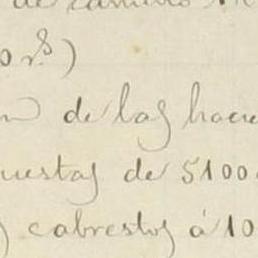 de
0 r.s)
de las hacie
uestas de 5100
) cabrestos á 10